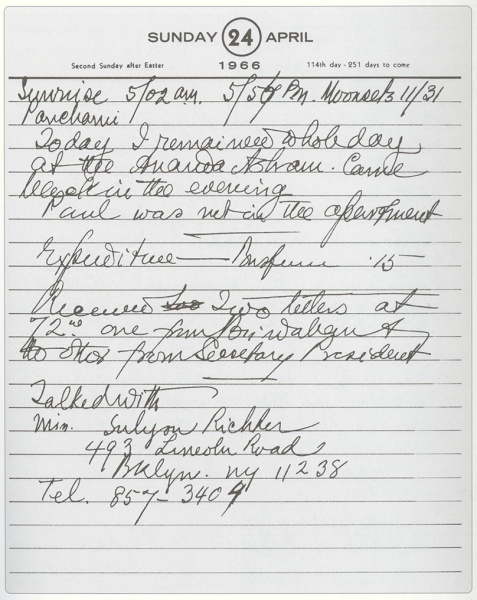 SUNDAY 24 APRIL
Second Sunday after Easter 1966 114th day - 251 days to come
Sunrise 5/02 a.m. 5/59 P.m. Moonsets 11/31
Panchami
Today I remained whole day
at the Ananda Ashram. Came
back in the evening
Paul was not in the apartment
Expenditure — Busfare .15
Received two Two letters at
72nd one from and
the other from Secretary President
Talked with
Min. Richter
493 Lincoln Road
Bklyn. ny 11238
Tel. 857-3409